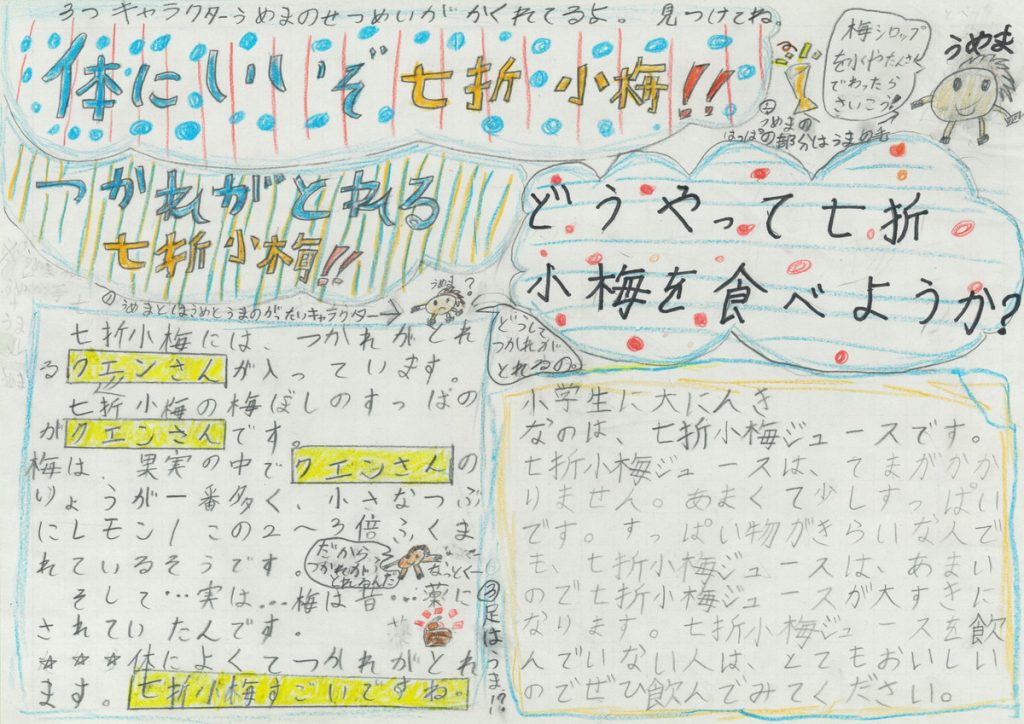 3つキャラクターうめまのせつめいがかくれてるよ。見つけてね。
体にいいぞ七折小梅!!
梅シロップ
を水やたんさん
でわったら
さいこう!
うめま
②うめまの
はっぱの部分はうまの毛
つかれがとれる
七折小梅!!
①うめまとはうめとうまのがったいキャラクター→
うめま?
どうして
つかれが
とれるの。
七折小梅には、つかれがとれ
るクエンさんが入っています。
七折小梅の梅ぼしのすっぱの
がクエンさんです。
梅は、果実の中でクエンさんの
りょうが一番多く、小さなつぶ
にレモン1この2~3倍ふくま
れているそうです。
だから
つかれが
とれるんだ
なっとくー
そして…実は…梅は昔…薬に
されていたんです。
薬
☆☆☆体によくてつかれがとれ
ます。七折小梅すごいですね。
③足はうま!?
どうやって七折
小梅を食べようか?
小学生に大にんき
なのは、七折小梅ジュースです。
七折小梅ジュースは、てまがかか
りません。あまくて少しすっぱい
です。すっぱい物がきらいな人で
も、七折小梅ジュースは、あまい
ので七折小梅ジュースが大すきに
なります。七折小梅ジュースを飲
んでいない人は、とてもおいしい
のでぜひ飲んでみてください。